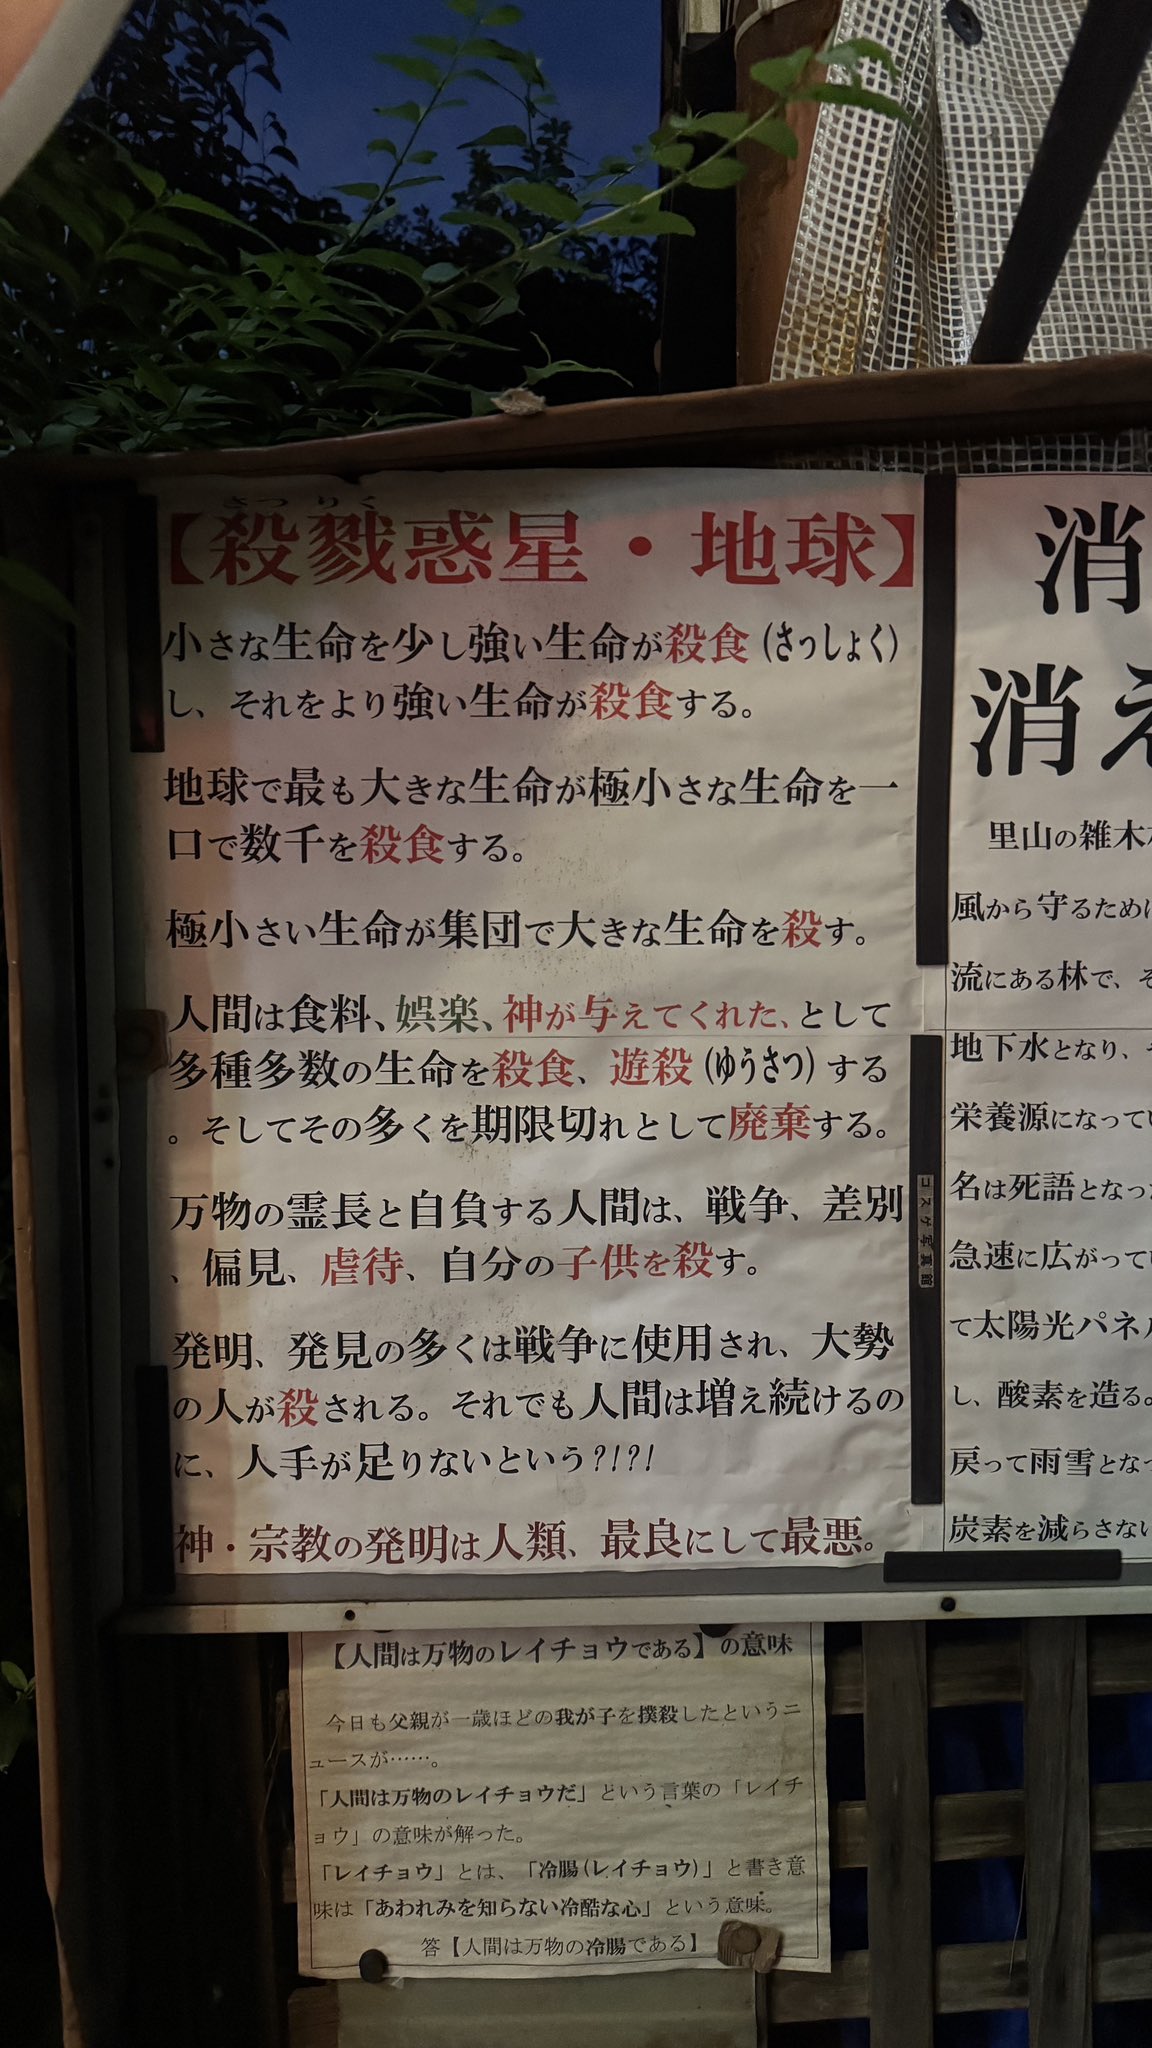 さつりく
【殺戮惑星・地球】
小さな生命を少し強い生命が殺食(さっしょく)
し、それをより強い生命が殺食する。
地球で最も大きな生命が極小さな生命を一
口で数千を殺食する。
極小さい生命が集団で大きな生命を殺す。
人間は食料、娯楽、神が与えてくれた、として
多種多数の生命を殺食、遊殺(ゆうさつ)する
。そしてその多くを期限切れとして廃棄する。
万物の霊長と自負する人間は、戦争、差別
、偏見、虐待、自分の子供を殺す。
発明、発見の多くは戦争に使用され、大勢
の人が殺される。それでも人間は増え続けるの
に、人手が足りないという?!?!
神・宗教の発明は人類、最良にして最悪。
コスゲ写真館
消
消え
里山の雑木
風から守るため
流にある林で、そ
地下水となり、
栄養源になって
名は死語となっ
急速に広がって
て太陽光パネル
し、酸素を造る。
戻って雨雪となっ
炭素を減らさない
【人間は万物のレイチョウである】の意味
今日も父親が一歳ほどの我が子を撲殺したというニ
ュースが……。
「人間は万物のレイチョウだ」という言葉の「レイチ
ョウ」の意味が解った。
「レイチョウ」とは、「冷腸(レイチョウ)」と書き意
味は「あわれみを知らない冷酷な心」という意味。
答【人間は万物の冷腸である】